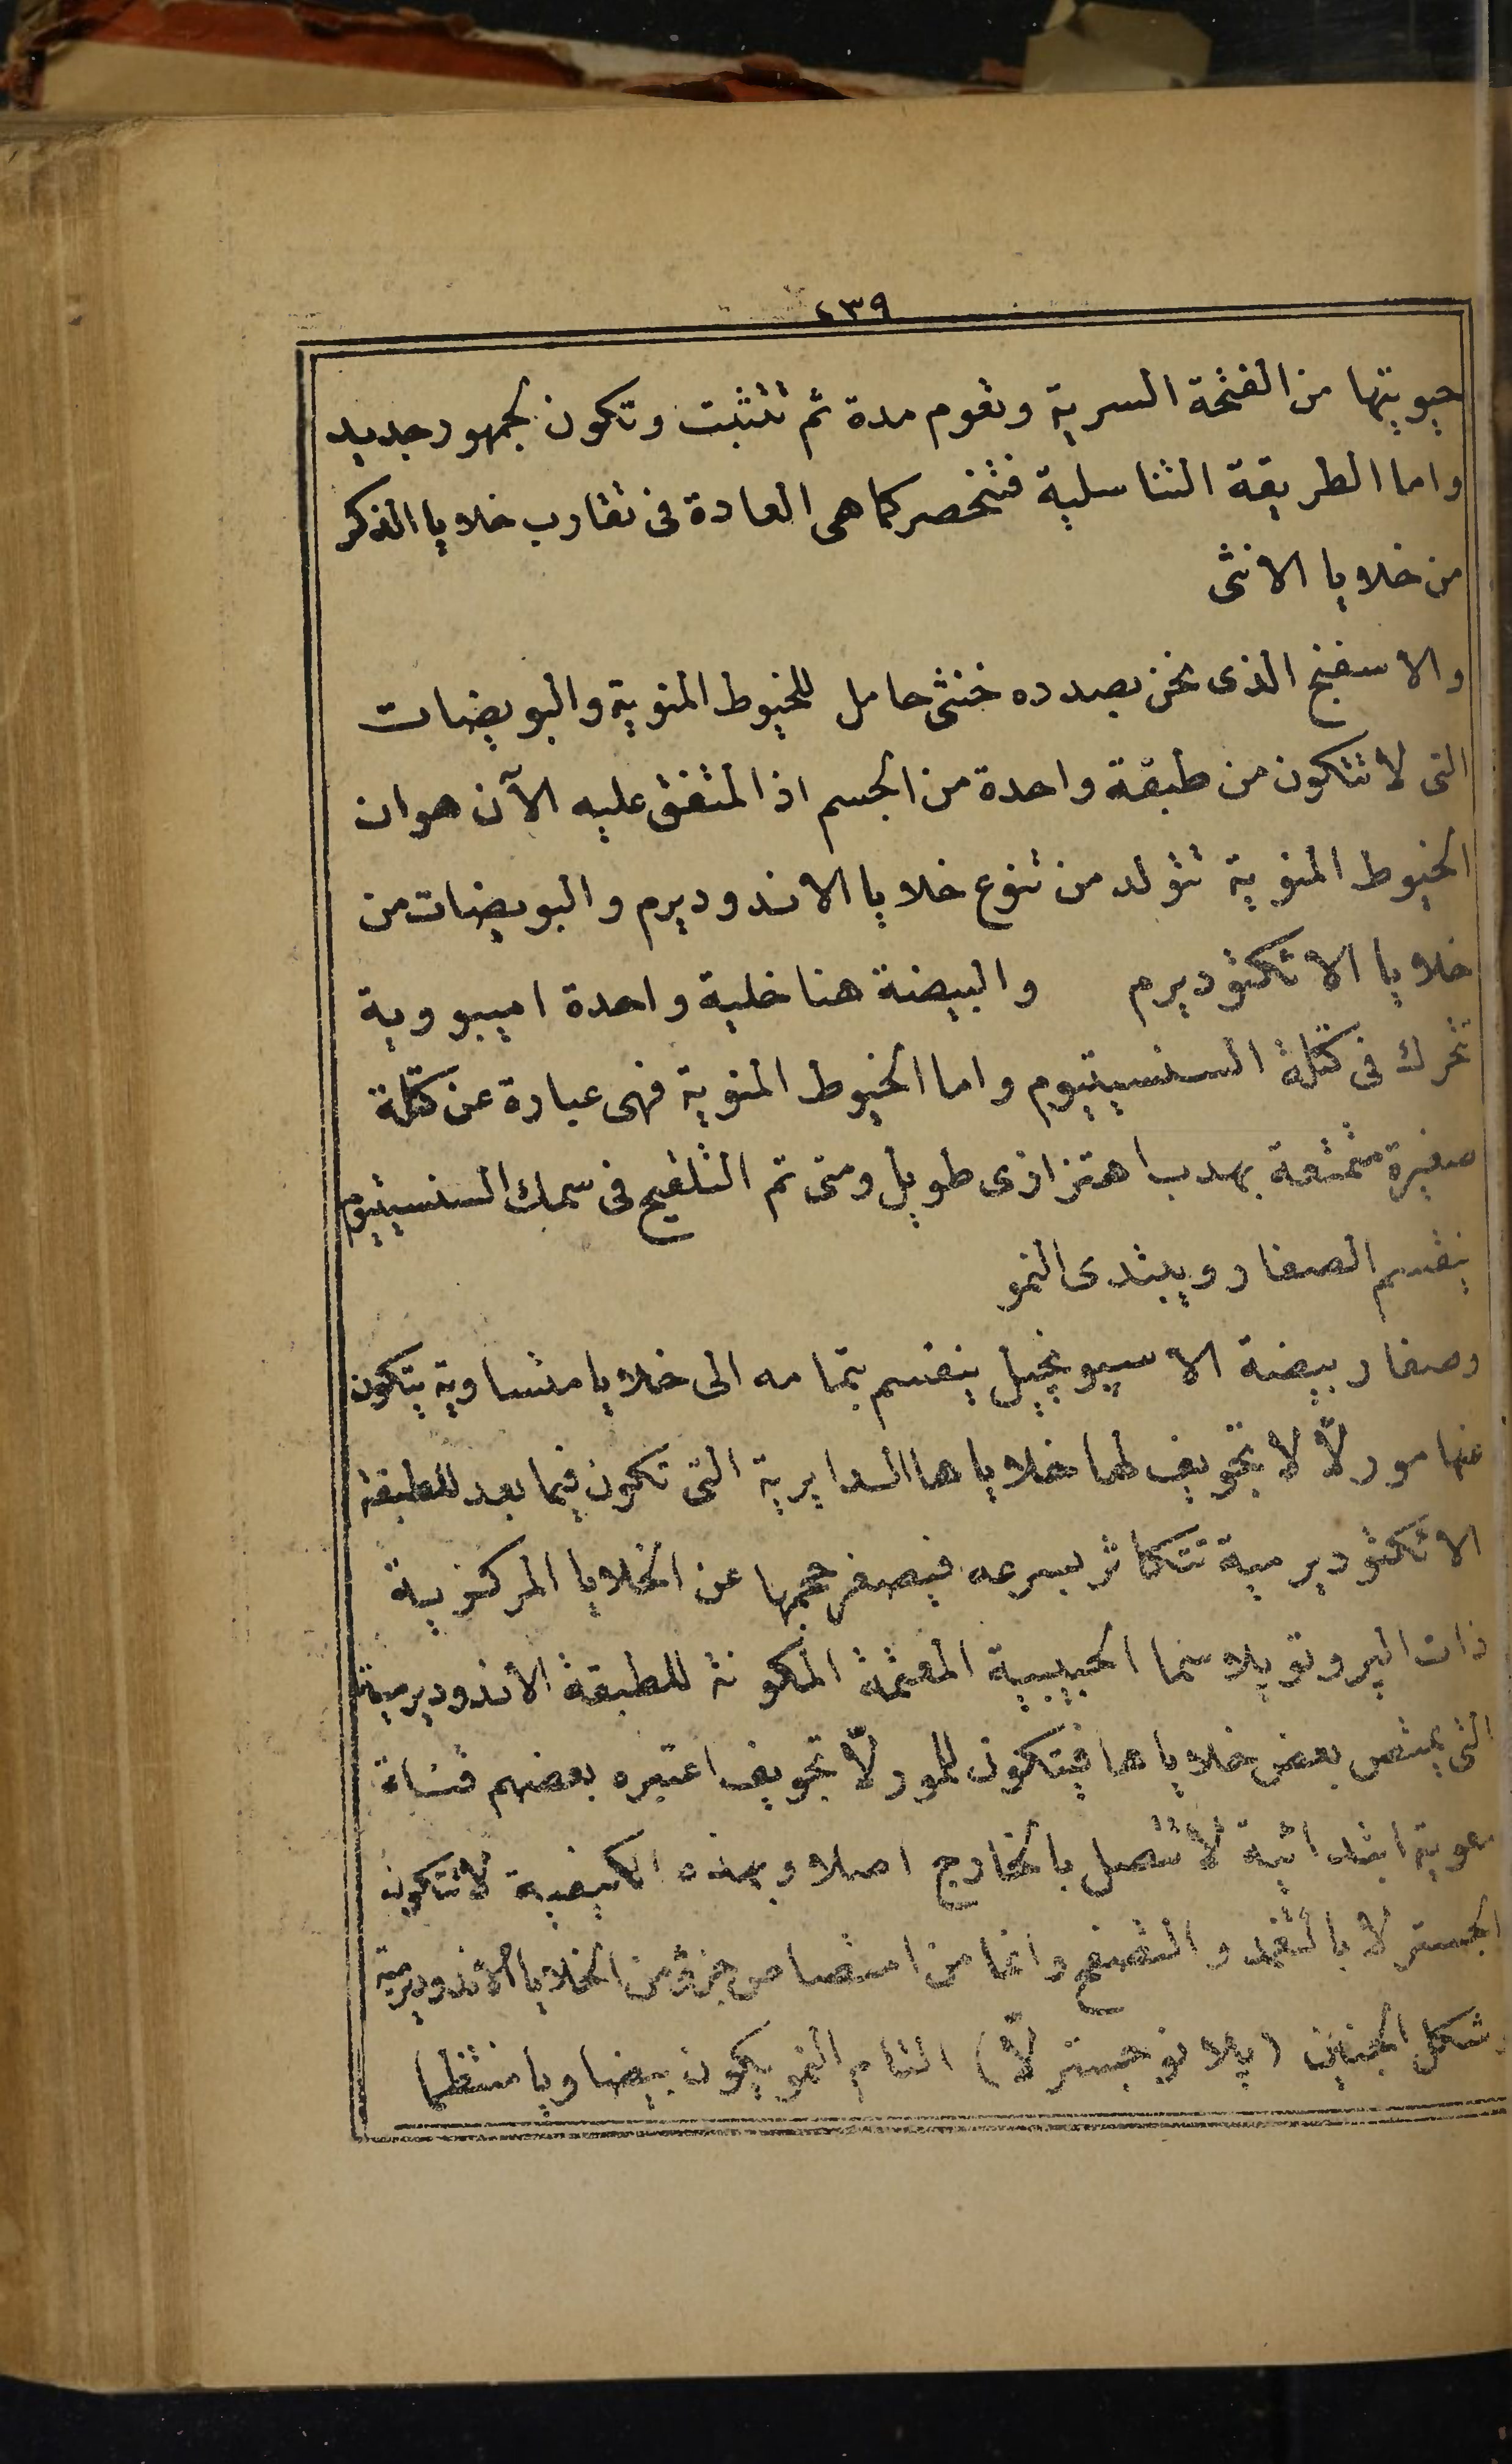 ٤٣٩
حيويتها من الفتحة السرية وتعوم مدة ثم تتثبت وتكون لجمهور جديد
واما الطريقة التناسلية فتنحصر كما هى العادة فى تقارب خلايا الذكر
من خلايا الانثى
والاسفنج الذى نحن بصدده خنثى حامل للخيوط المنوية والبويضات
التى لا تتكون من طبقة واحدة من الجسم اذ المتفق عليه الآن هو ان
الخيوط المنوية تتولد من تنوع خلايا الاندوديرم والبويضات من
خلايا الاتكتوديرم والبيضة هنا خلية واحدة اميبووية
تتحرك فى كتلة السنسيتيوم واما الخيوط المنوية فهى عبارة عن كتلة
صغيرة متمتعة بهدب اهتزازى طويل ومتى تم التلقيح فى سمك السنسيتيوم
ينقسم الصفار ويبتدى النمو
وصفار بيضة الاسيونجيل ينقسم بتمامه الى خلايا متساوية يتكون
عنها مورلاّ لا تجويف لها خلاياها الدايرية التى تكون فيما بعد للطبقة
الاتكتوديرمية تتكاثر بسرعه فيصغر حجمها عن الخلايا المركزية
ذات البروتوپلاسما الحبيبية المعتمة المكونة للطبقة الاندوديرمية
التى يمتص بعض خلاياها فيتكون للمورلاّ تجويف اعتبره بعضهم قناة
معوية ابتدائية لا تتصل بالخارج اصلا وبهذه الكيفية لا تتكون
الجسترلا بالتغمد والتصفح وانما من امتصاص جزؤ من الخلايا الاندوديرمية
وشكل الجنين (پلانوجسترلاّ) التام النمو يكون بيضاويا منتظما